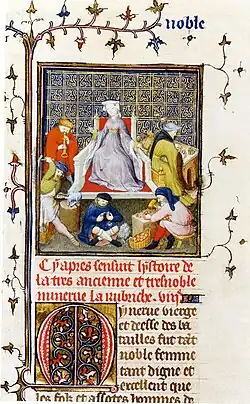 noble
Cy apres sensuit lystoire de
la tres ancienne et tresnoble
minerve la rubriche. viiie
Mynerue vierge
et deesse des ba
tailles fut tant
noble femme
tant digne et
excellent que
les folz et assotes hommes de